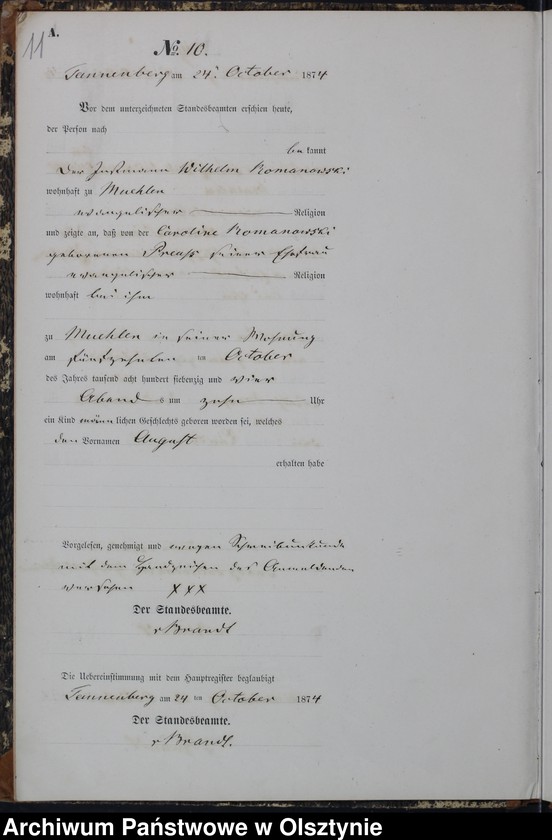 11
A.
№ 10.
Tannenberg am 24t October 1874
Vor dem unterzeichneten Standesbeamten erschien heute,
der Person nach
be kannt
Der Instmann Wilhelm Romanowski
wohnhaft zu Muehlen
evangelischer Religion
und zeigte an, daß von der Caroline Romanowski
geborenen Preuß seiner Ehefrau
evangelischer Religion
wohnhaft bei ihm
zu Muehlen in seiner Wohnung
am fünfzehnten ten October
des Jahres tausend acht hundert siebenzig und vier
Abend s um zehn Uhr
ein Kind männ lichen Geschlechts geboren worden sei, welches
den Vornamen August
erhalten habe
Vorgelesen, genehmigt und wegen Schreibunkunde
mit dem Handzeichen des Anmeldenden
versehen XXX
Der Standesbeamte.
v Brandt
Die Uebereinstimmung mit dem Hauptregister beglaubigt
Tannenberg am 24 ten October 1874
Der Standesbeamte.
v Brandt.
Archiwum Państwowe w Olsztynie